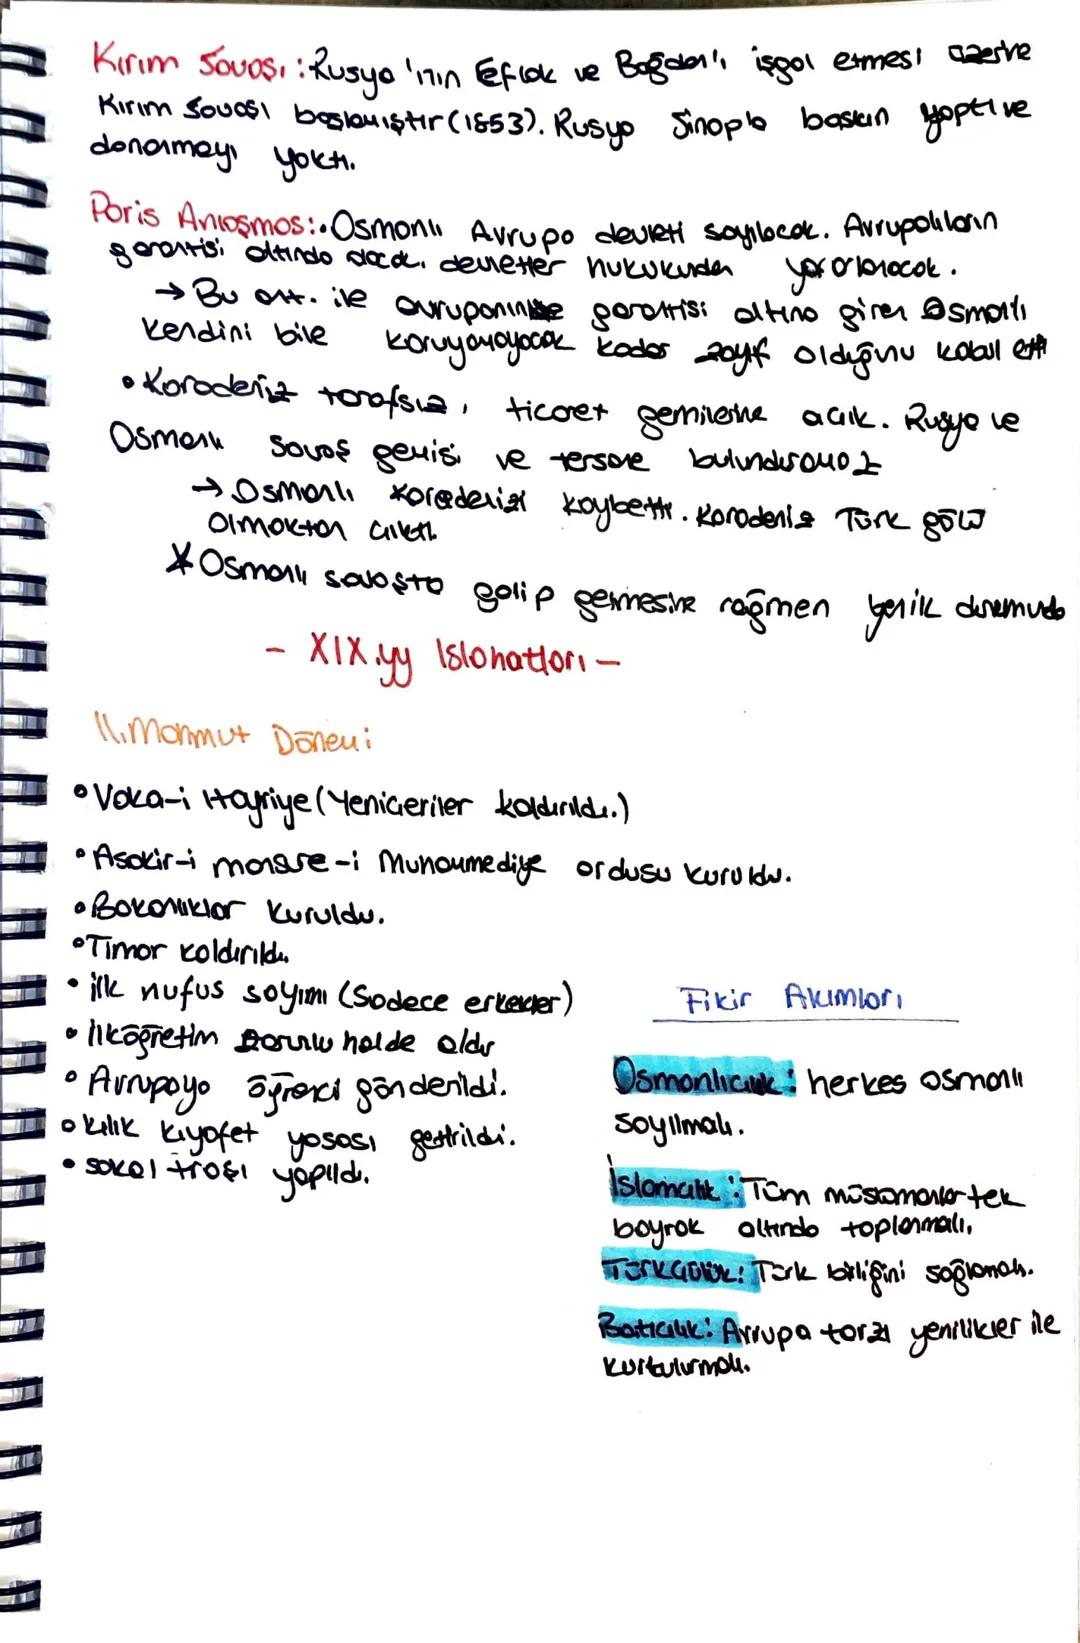 Kırım Savaşı: Rusya'nın Eflak ve Boğdan'ı işgal etmesi üzerine
Kırım Savaşı başlamıştır (1853). Rusya Sinop'a baskın yaptı ve
donanmayı yaktı.
Paris Anlaşması: • Osmanlı Avrupa devleti sayılacak. Avrupalıların
garantisi altında olacak, devletler hukukundan yararlanacak.
→ Bu ant. ile avrupanın garantisi altına giren Osmanlı
kendini bile koruyamayacak kadar zayıf olduğunu kabul etti
• Karadeniz tarafsız, ticaret gemilerine açık. Rusya ve
Osmanlı savaş gemisi ve tersane bulunduramaz
→ Osmanlı Karadenizi kaybetti. Karadeniz Türk gölü
olmaktan çıktı.
* Osmanlı savaşta galip gelmesine rağmen yenik durumda
- XIX.yy Islahatları -
II. Mahmut Dönemi
• Vaka-i Hayriye (Yeniçeriler kaldırıldı.)
• Asakir-i mansure-i Muhammediye ordusu kuruldu.
• Bakanlıklar kuruldu.
• Tımar kaldırıldı.
• ilk nufus sayımı (Sadece erkekler)
• ilköğretim zorunlu halde oldu
• Avrupaya öğrenci gönderildi.
• kılık kıyafet yasası getirildi.
• sakal traşı yapıldı.
Fikir Akımları
Osmanlıcılık: herkes osmanlı
sayılmalı.
İslamcılık: Tüm müslümanlar tek
bayrak altında toplanmalı.
Türkçülük: Türk birliğini sağlamalı.
Batıcılık: Avrupa tarzı yenilikler ile
kurtulurmalı.